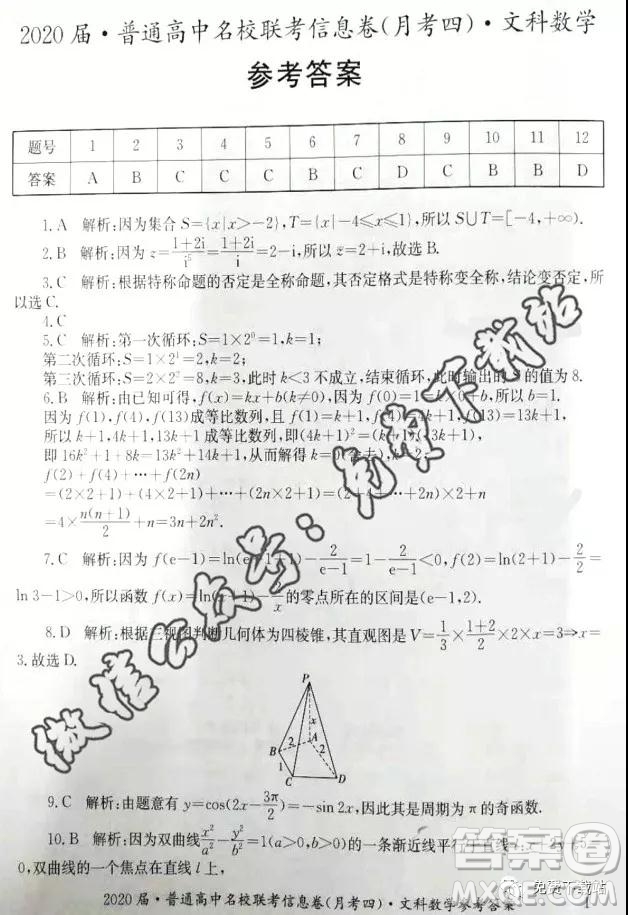 2020届·普通高中名校联考信息卷(月考四)·文科数学
参考答案
题号 1 2 3 4 5 6 7 8 9 10 11 12
答案 A B C C C B C D C B B D
1.A 解析:因为集合S={x|x>-2},T={x|-4≤x≤1},所以S∪T=[-4,+∞).
2.B 解析:因为z=(1+2i)/i⁵=(1+2i)/i=2-i,所以z̄=2+i,故选B.
3.C 解析:根据特称命题的否定是全称命题,其否定格式是特称变全称,结论变否定,所
以选C.
4.C
5.C 解析:第一次循环:S=1×2⁰=1,k=1;
第二次循环:S=1×2¹=2,k=2;
第三次循环:S=2×2²=8,k=3,此时k<3不成立,结束循环,此时输出的S的值为8.
6.B 解析:由已知可得,f(x)=kx+b(k≠0),因为f(0)=1=k×0+b,所以b=1.
因为f(1),f(4),f(13)成等比数列,且f(1)=k+1,f(4)=4k+1,f(13)=13k+1,
所以k+1,4k+1,13k+1成等比数列,即(4k+1)²=(k+1)(13k+1),
即16k²+1+8k=13k²+14k+1,从而解得k=0(舍去),k=2,
f(2)+f(4)+…+f(2n)
=(2×2+1)+(4×2+1)+…+(2n×2+1)=(2+4+…+2n)×2+n
=4×n(n+1)/2+n=3n+2n².
7.C 解析:因为f(e-1)=ln(e-1+1)-2/(e-1)=1-2/(e-1)<0,f(2)=ln(2+1)-2/2=
ln 3-1>0,所以函数f(x)=ln(x+1)-2/x的零点所在的区间是(e-1,2).
8.D 解析:根据三视图判断几何体为四棱锥,其直观图是V=1/3×(1+2)/2×2×x=3⇒x=
3.故选D.
P
x
A
2
2
B
1
C
D
9.C 解析:由题意有y=cos(2x-3π/2)=-sin 2x,因此其是周期为π的奇函数.
10.B 解析:因为双曲线x²/a²-y²/b²=1(a>0,b>0)的一条渐近线平行于直线l:x+2y+5=
0,双曲线的一个焦点在直线l上,
2020届·普通高中名校联考信息卷(月考四)·文科数学参考答案 1
微信公众号:
免费下载站
答案圈